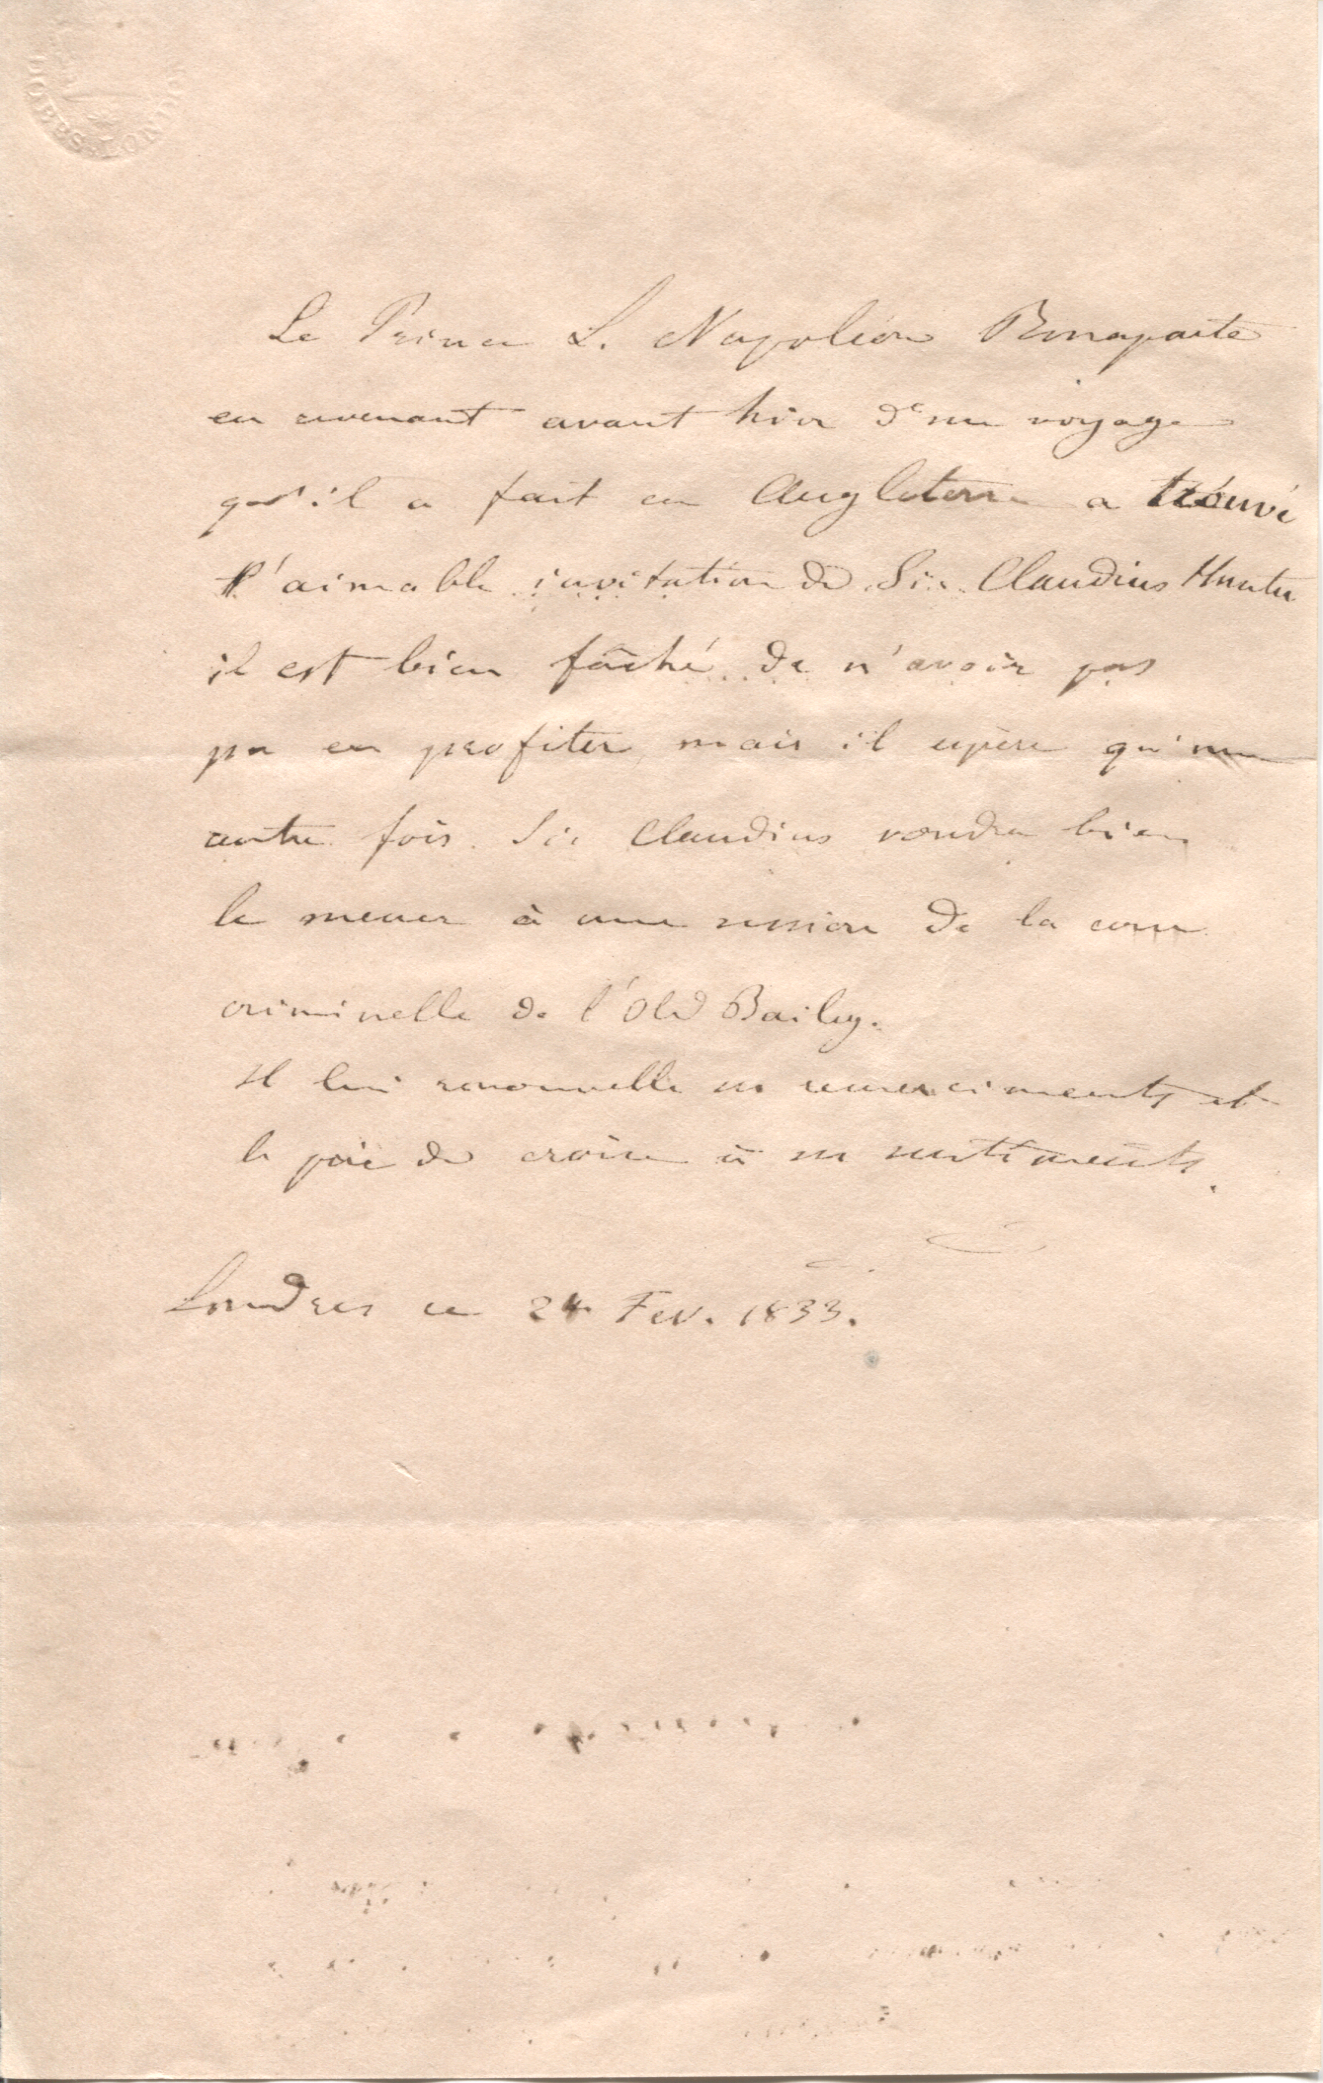 DOBBS LONDON
Le Prince L. Napoléon Bonaparte
en revenant avant hier d'un voyage
qu'il a fait en Angleterre a trouvé
l'aimable invitation de Sir Claudius Hunter
il est bien fâché de n'avoir pas
pu en profiter, mais il espère qu'une
autre fois Sir Claudius voudra bien
le mener à une session de la cour
criminelle de l'Old Bailey.
Il lui renouvelle ses remerciments et
le prie de croire à ses sentiments.
Londres ce 24 Fev. 1833.